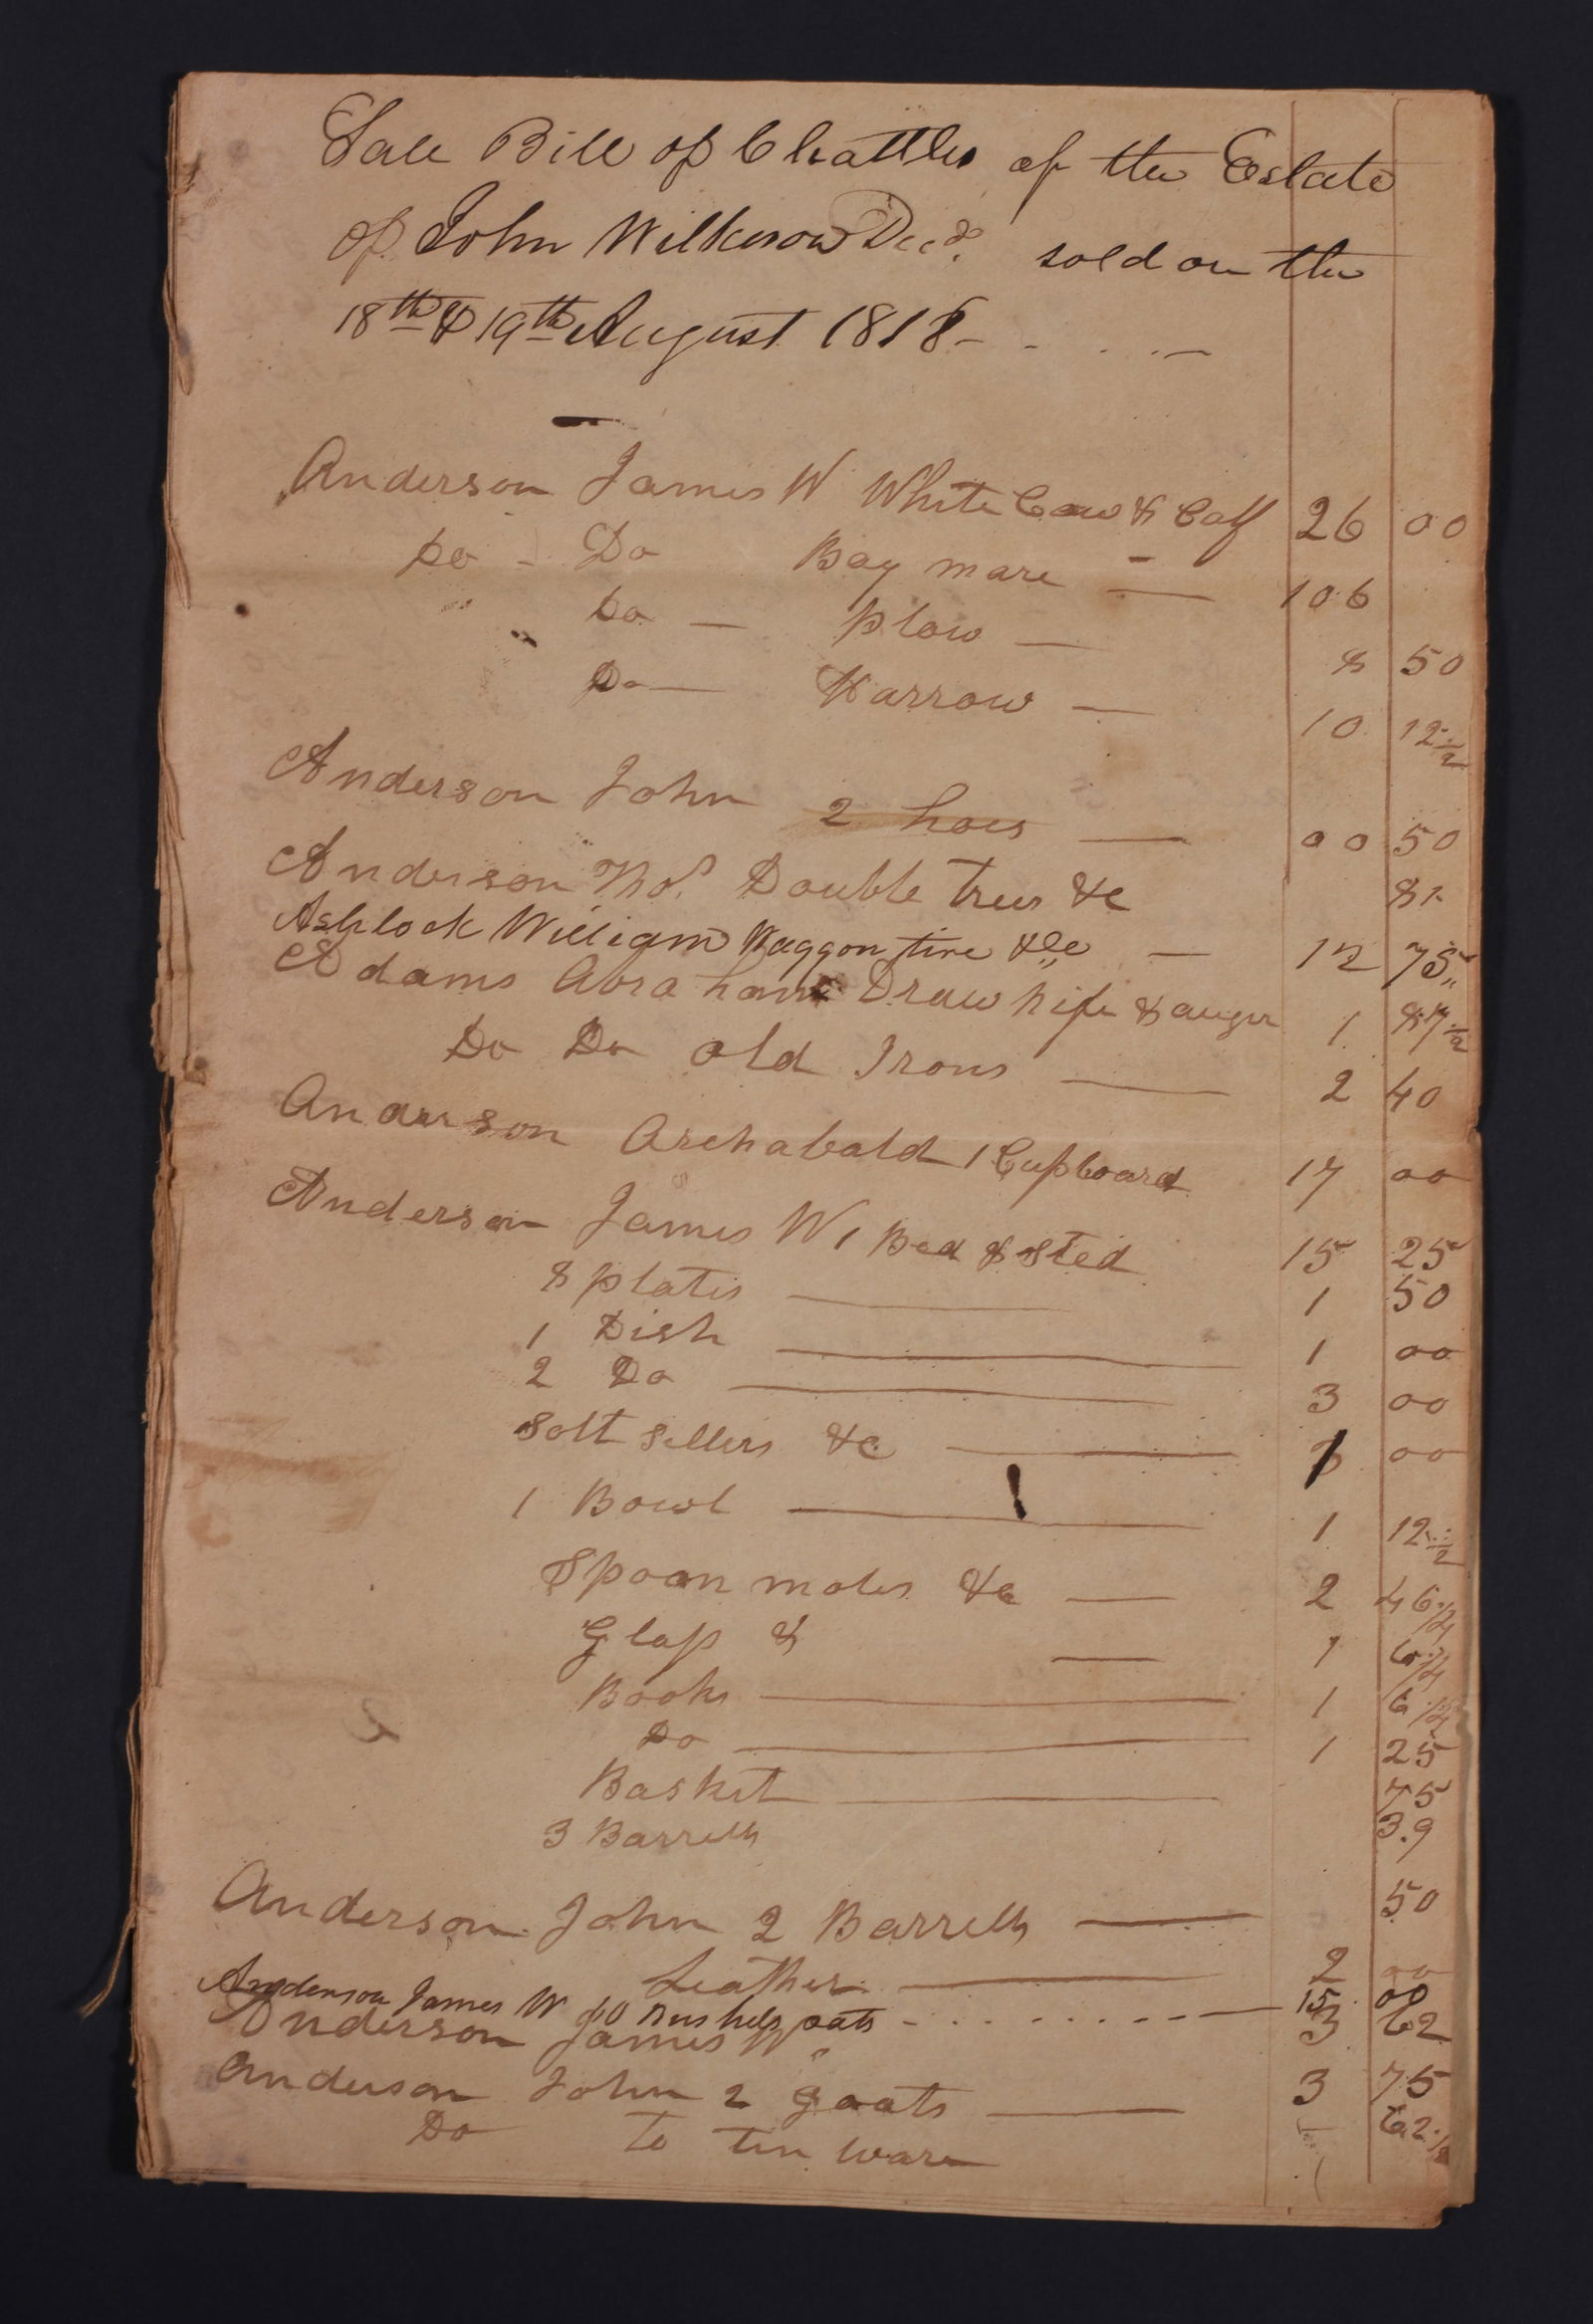 Sale Bill of Chattles of the Estate
of John Wilkerson Decd. sold on the
18th & 19th August 1818 - - . . . -
Anderson James W White Cow & Calf 26 00
Do - Do Bay mare — 106
Do — plow — 8 50
Do — Harrow — 10 12 1/2
Anderson John 2 hoes — 00 50
Anderson Thos. Double trees &c 81
Ashlock William Waggon tire &c — 12 75
Adams Abraham Drawknife & auger 1 87 1/2
Do Do old Irons — 2 40
Anderson Archabald 1 Cupboard 17 00
Anderson James W 1 Bed & Sted 15 25
8 plates — 1 50
1 Dish — 1 00
2 Do — 3 00
Solt sellers &c — 1 00
1 Bowl — 1 12 1/2
Spoon moles &c — 2 46 1/4
Glass & — 1 6 1/4
Books — 1 6 1/4
Do — 1 25
Basket — 75
3 Barrells 3.9
Anderson John 2 Barrells — 50
Leather — 2 00
Anderson James W 40 Bushels oats - . . . . . . — 15 00
Anderson James W 3 62
Anderson John 2 goats — 3 75
Do to tin ware 62 1/2